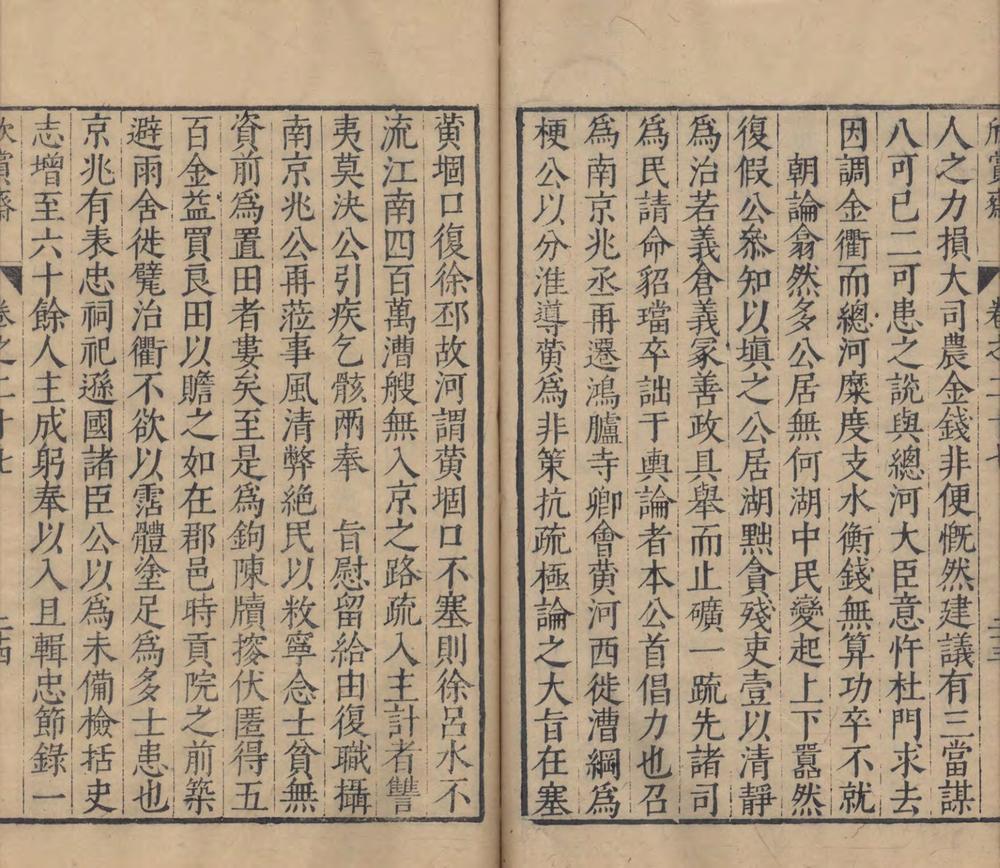 人之力損大司農金錢非便慨然建議有三當謀
八可已二可患之說與總河大臣意忤杜門求去
因調金衢而總河糜度支水衡錢無算功卒不就
朝論翕然多公居無何湖中民變起上下嚣然
復假公叅知以填之公居湖黜貪殘吏壹以清靜
爲治若義倉義冢善政具舉而止礦一疏先諸司
爲民請命貂璫卒詘于輿論者本公首倡力也召
爲南京兆丞再遷鴻臚寺卿會黄河西徙漕綱爲
梗公以分淮導黄爲非策抗疏極論之大旨在塞
黄堌口復徐邳故河謂黄堌口不塞則徐呂水不
流江南四百萬漕艘無入京之路疏入主計者讐
夷莫決公引疾乞骸兩奉　旨慰留給由復職攝
南京兆公再蒞事風清弊絶民以敉寧念士貧無
資前爲置田者婁矣至是爲鉤陳牘擦伏匿得五
百金益買良田以贍之如在郡邑時貢院之前築
避雨舍徙甓治衢不欲以霑體塗足爲多士患也
京兆有表忠祠祀遜國諸臣公以爲未備檢括史
志增至六十餘人主成躬奉以入且輯忠節錄一
卷之二十七